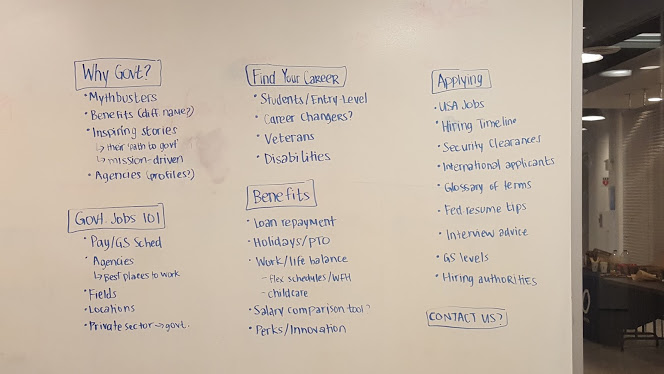 Why Govt?
• Mythbusters
• Benefits (diff name?)
• Inspiring stories
↳ their 'path to govt'
↳ mission-driven
• Agencies (profiles?)
Govt. Jobs 101
• Pay/GS Sched
• Agencies
↳ Best places to work
• Fields
• Locations
• Private sector → govt.
Find Your Career
• Students/Entry-Level
• Career changers?
• Veterans
• Disabilities
Benefits
• loan repayment
• Holidays/PTO
• Work/life balance
- flex schedules/WFH
- childcare
• Salary comparison tool?
• Perks/Innovation
Applying
• USA Jobs
• Hiring Timeline
• Security Clearances
• International applicants
• Glossary of terms
• Fed resume tips
• Interview advice
• GS levels
• Hiring authorities
CONTACT US?